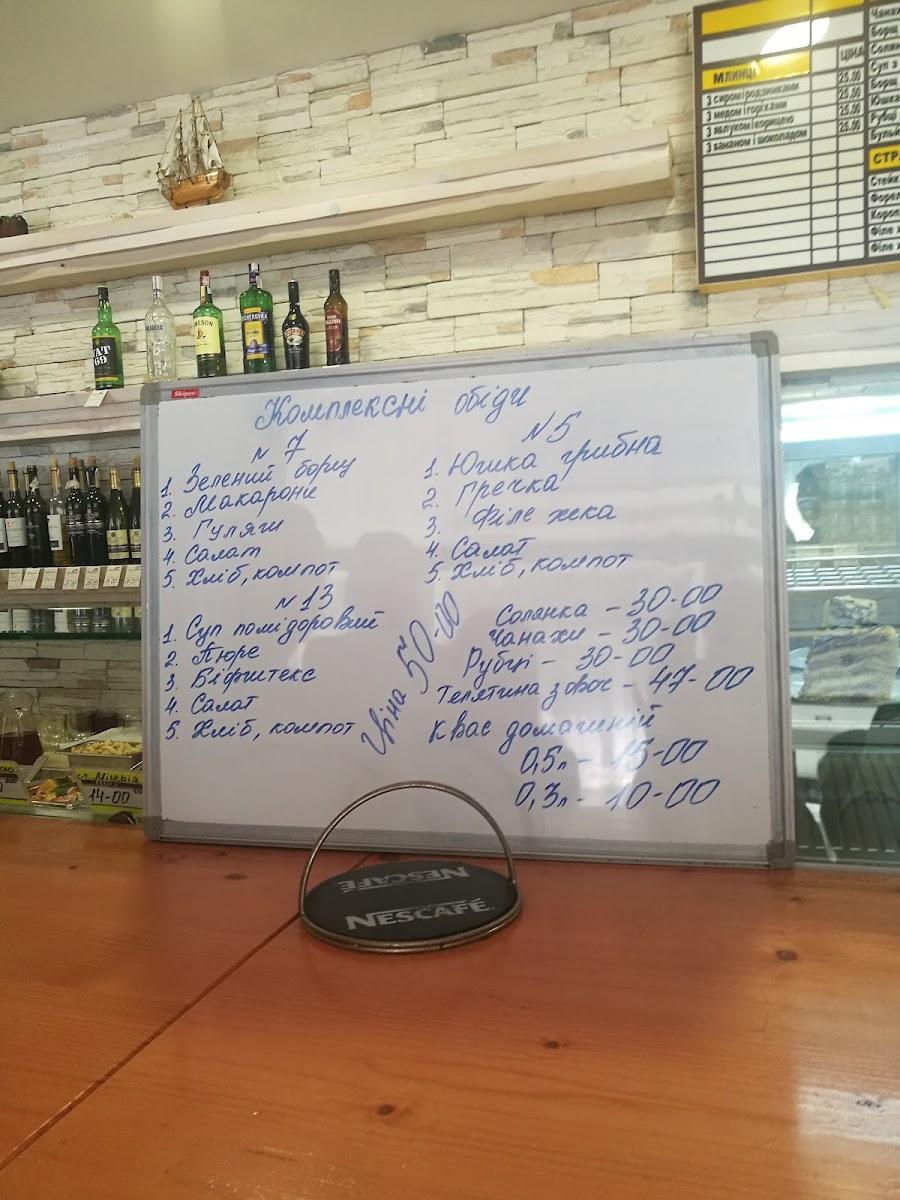 МЛИНЦІ
ЦІНА
З сиром і родзинками 25.00
З медом і горіхами 25.00
З яблуком і корицею 25.00
З бананом і шоколадом 25.00
Борщ
Суп з
Борщ
Юшка
Рубці
СТРА
Стейк
Короп
Філе
Філе
VAT
69
Skiper
Комплексні обіди
N 7
1. Зелений борщ
2. Макарони
3. Гуляш
4. Салат
5. Хліб, компот
N 5
1. Юшка грибна
2. Гречка
3. Філе хека
4. Салат
5. Хліб, компот
N 13
1. Суп помідоровий
2. Пюре
3. Біфштекс
4. Салат
5. Хліб, компот
Ціна 50-00
Солянка - 30-00
Чанахи - 30-00
Рубці - 30-00
Телятина з овоч - 47-00
квас домашній
0,5л - 15-00
0,3л - 10-00
14-00
NESCAFÉ
NESCAFÉ